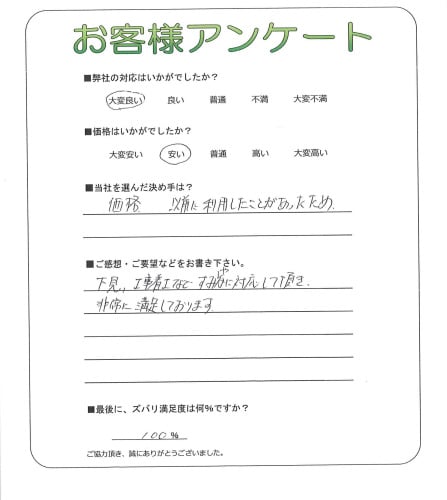 お客様アンケート
■弊社の対応はいかがでしたか?
大変良い 良い 普通 不満 大変不満
■価格はいかがでしたか?
大変安い 安い 普通 高い 大変高い
■当社を選んだ決め手は?
価格 以前に利用したことがあったため.
■ご感想・ご要望などをお書き下さい。
下見、工事着工など すみやかに対応して頂き.
非常に満足しております.
■最後に、ズバリ満足度は何%ですか?
100%
ご協力頂き、誠にありがとうございました。